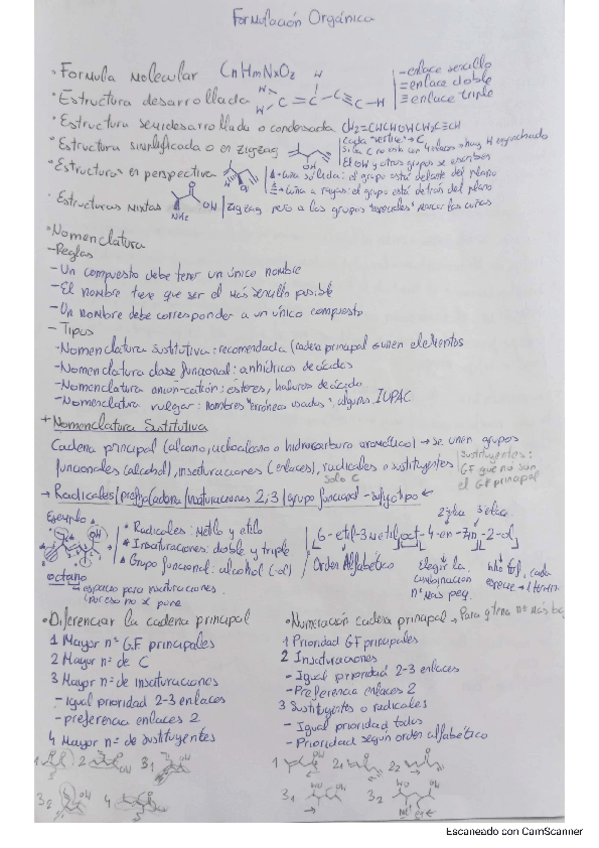 Formulación Orgánica
• Formula molecular CnHmNxOz
- enlace sencillo
= enlace doble
≡ enlace triple
• Estructura desarrollada H H H C = C - C ≡ C - H
• Estructura semidesarrollada o condensada CH2=CHCHOHCH2C≡CH
• Estructura simplificada o en zigzag OH
Cada "vertice" → C
El OH y otros grupos se escriben
• Estructuras en perspectiva
▲ = cuña sólida: el grupo está delante del plano
= cuña a rayas: el grupo está detrás del plano
• Estructuras mixtas O OH NH2 | zigzag pero a los grupos "especiales" marcar las cuñas
• Nomenclatura
- Reglas
- Un compuesto debe tener un único nombre
- El nombre tiene que ser el más sencillo posible
- Un nombre debe corresponder a un único compuesto
- Tipos
- Nomenclatura sustitutiva: recomendada (cadena principal se unen elementos
- Nomenclatura clase funcional: anhídricos de ácidos
- Nomenclatura anión-catión: ésteres, haluros de ácido
- Nomenclatura vulgar: nombres "erróneos usados", algunos IUPAC
+ Nomenclatura Sustitutiva
Cadena principal (alcano, cicloalcano o hidrocarburo aromático) → se unen grupos
funcionales (alcohol), insaturaciones (enlaces), radicales o sustituyentes
solo C
Sustituyentes:
GF que no son
el GF principal
→ Radicales/prefijo cadena/insaturaciones 2;3/grupo funcional - sufijo tipo ←
Ejemplo
OH
• Radicales: Metilo y etilo
* Insaturaciones: doble y triple
▲ Grupo funcional: alcohol (-ol)
octano
→ espacio para insaturaciones
por eso no se pone
6-etil-3-metiloct-4-en-7-in-2-ol
Orden Alfabético
Elegir la
combinación
nº más peq.
• Diferenciar la cadena principal
1 Mayor nº G.F principales
2 Mayor nº de C
3 Mayor nº de insaturaciones
- igual prioridad 2-3 enlaces
- preferencia enlaces 2
4 Mayor nº de sustituyentes
• Numeración cadena principal → Para q tenga nº más bajo
1 Prioridad GF principales
2 Insaturaciones
- Igual prioridad 2-3 enlaces
- Preferencia enlaces 2
3 Sustituyentes o radicales
- Igual prioridad todos
- Prioridad según orden alfabético
1 2 3₁
3₂ 4
1 2₁ 2₂
3₁ 3₂
Escaneado con CamScanner